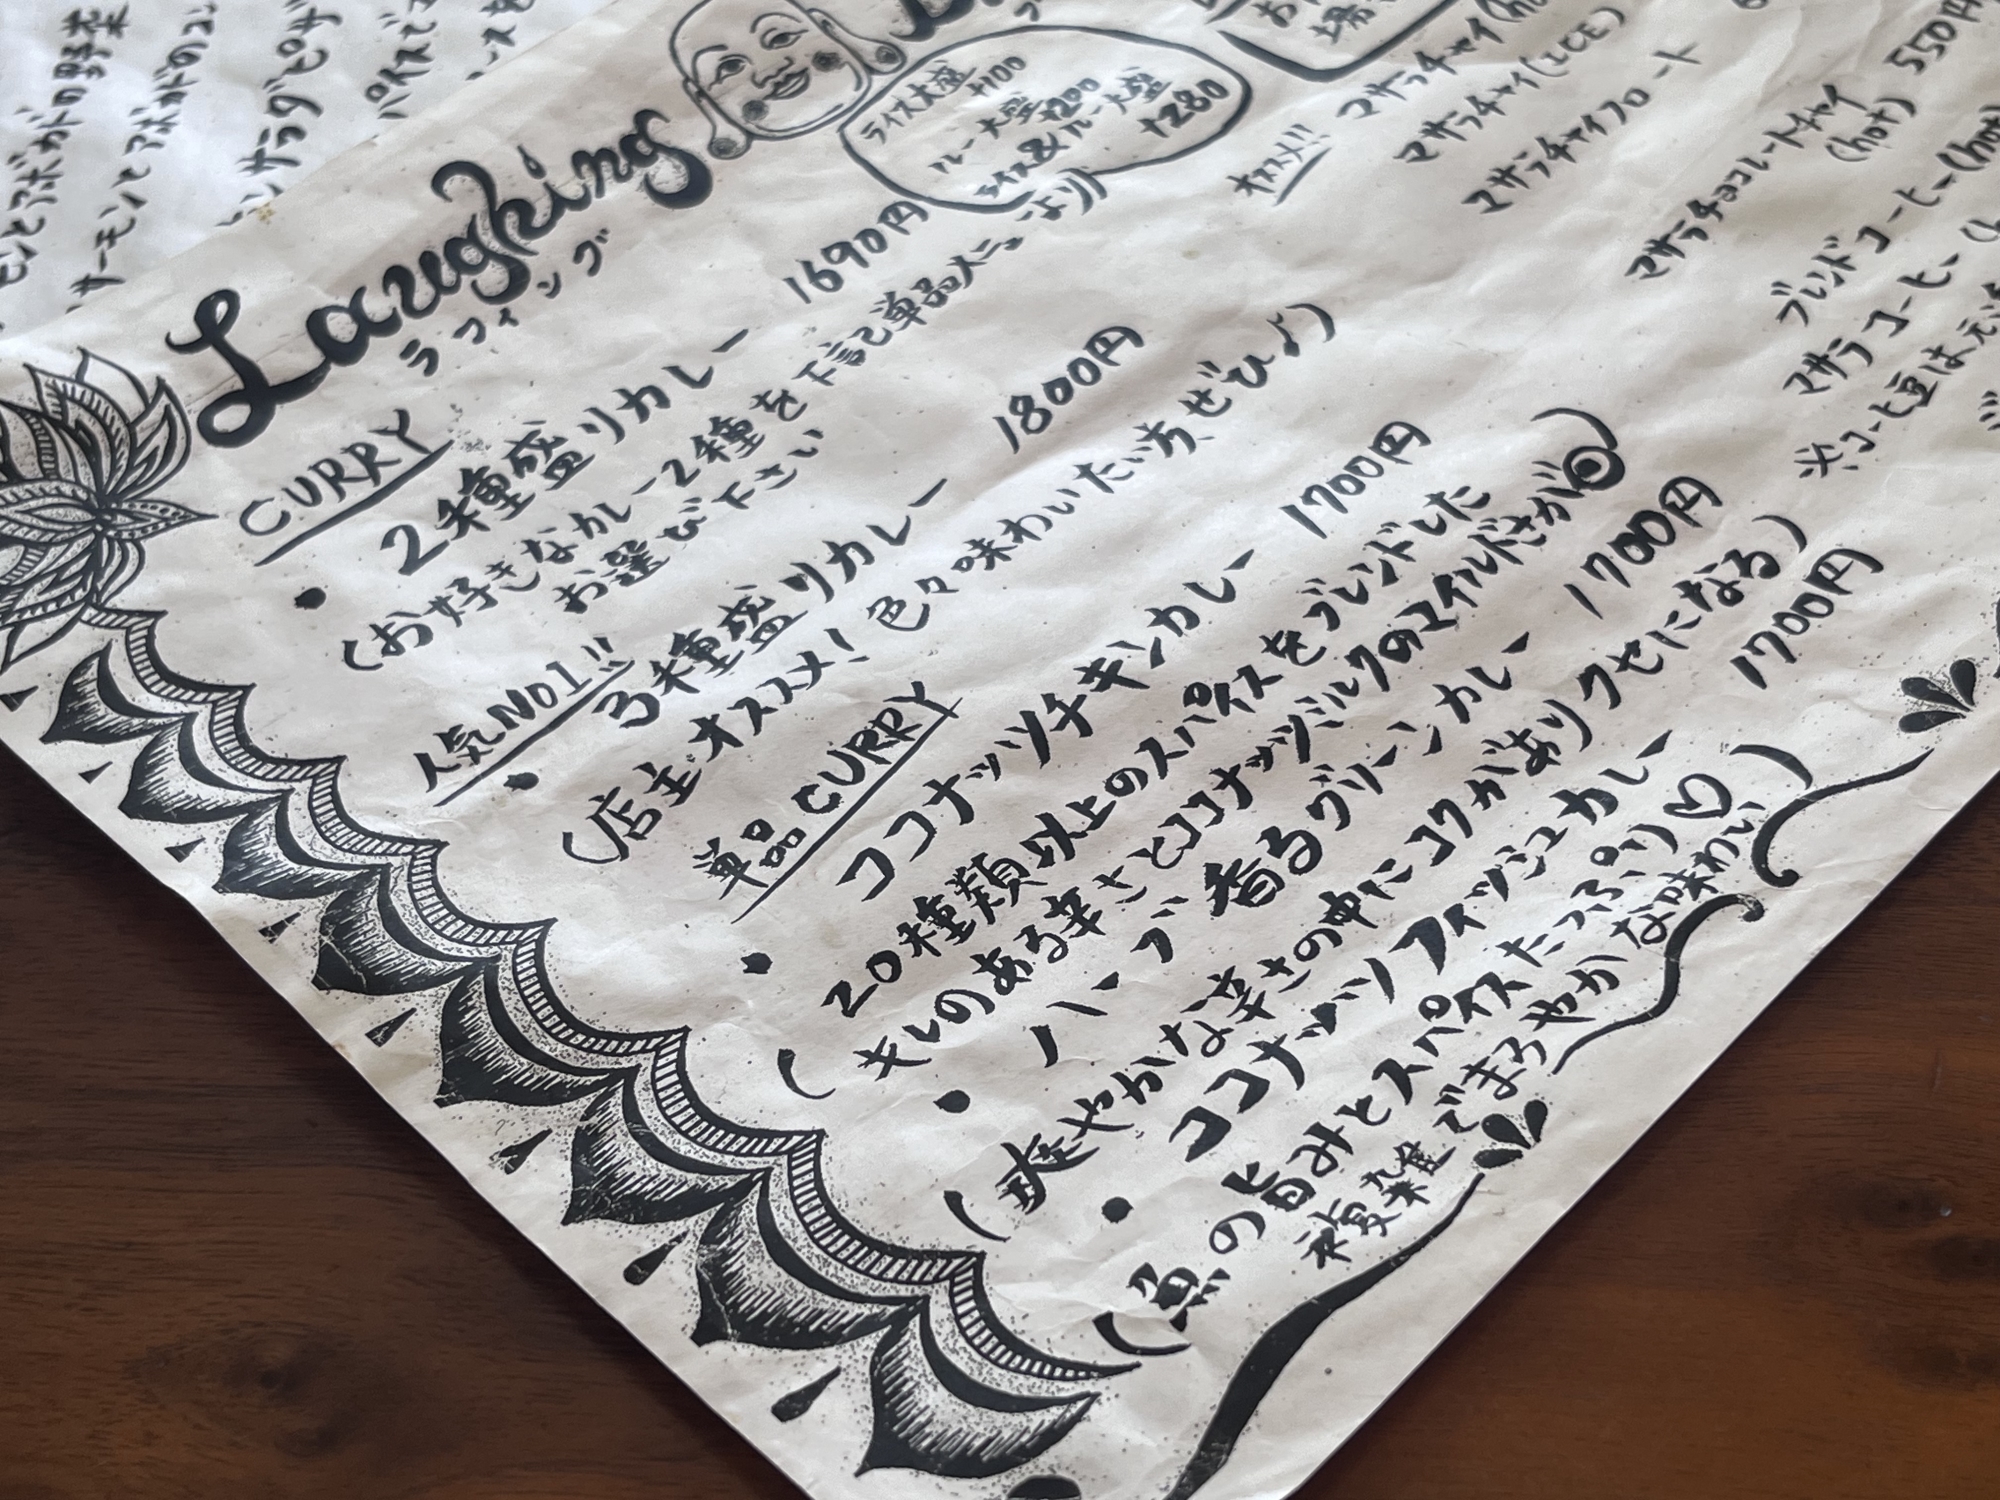 Laughing
ラフィング
ライス大盛
+100
ルー大盛
+200
ライス&ルー大盛
+280
CURRY
・2種盛りカレー 1690円
(お好きなカレー2種を下記単品メニューより)
お選び下さい
人気No1!!
・3種盛りカレー 1800円
(店主オススメ! 色々味わいたい方、ぜひ♪)
単品CURRY
・ココナッツチキンカレー 1700円
(20種類以上のスパイスをブレンドした
キレのある辛さとココナッツミルクのマイルドさが◎)
・ハーブ香るグリーンカレー 1700円
(爽やかな辛さの中にコクがありクセになる)
・ココナッツフィッシュカレー 1700円
(魚の旨みとスパイスたっぷり♡)
複雑でまろやかな味わい
オススメ!!
マサラチャイ(hot)
マサラチャイ(ICE)
マサラチャイフロート
マサラチョコレートチャイ
(hot) 550円
ブレンドコーヒー(hot)
マサラコーヒー
※コーヒー豆は
の野菜
サーモンとアボカドの
サラダピザ